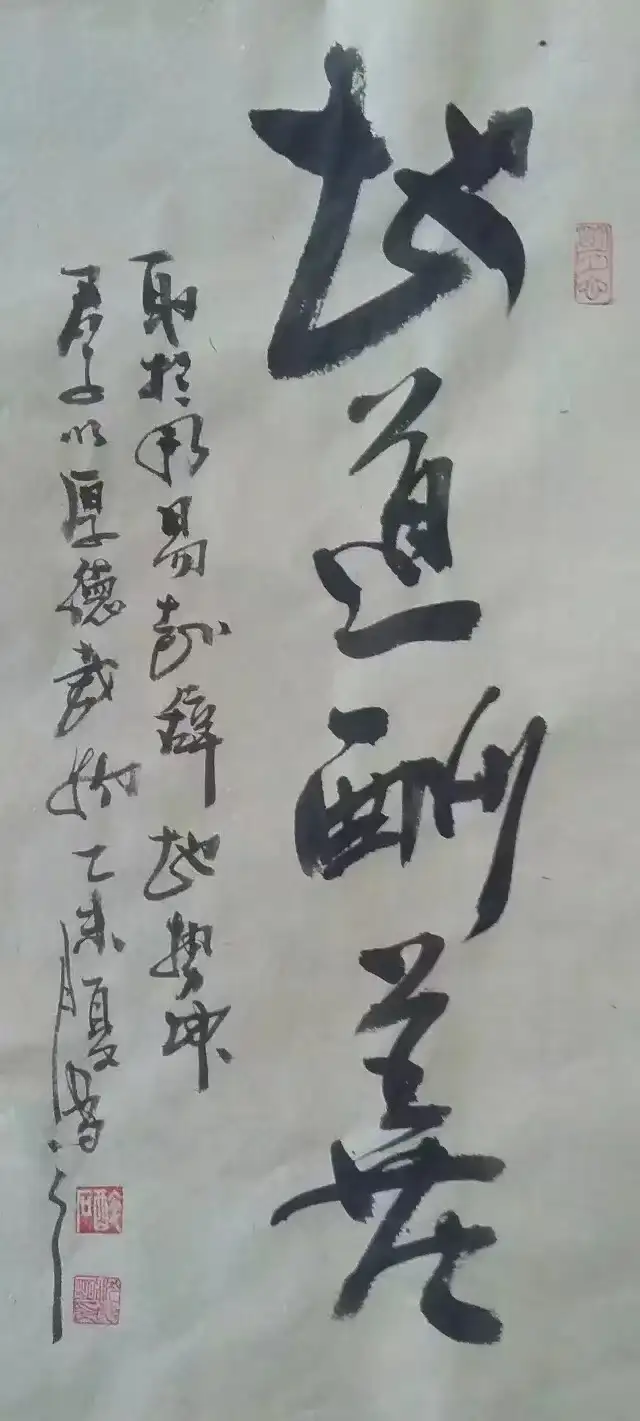 地道酬善
取於周易辭地勢坤
君子以厚德載物乙未夏